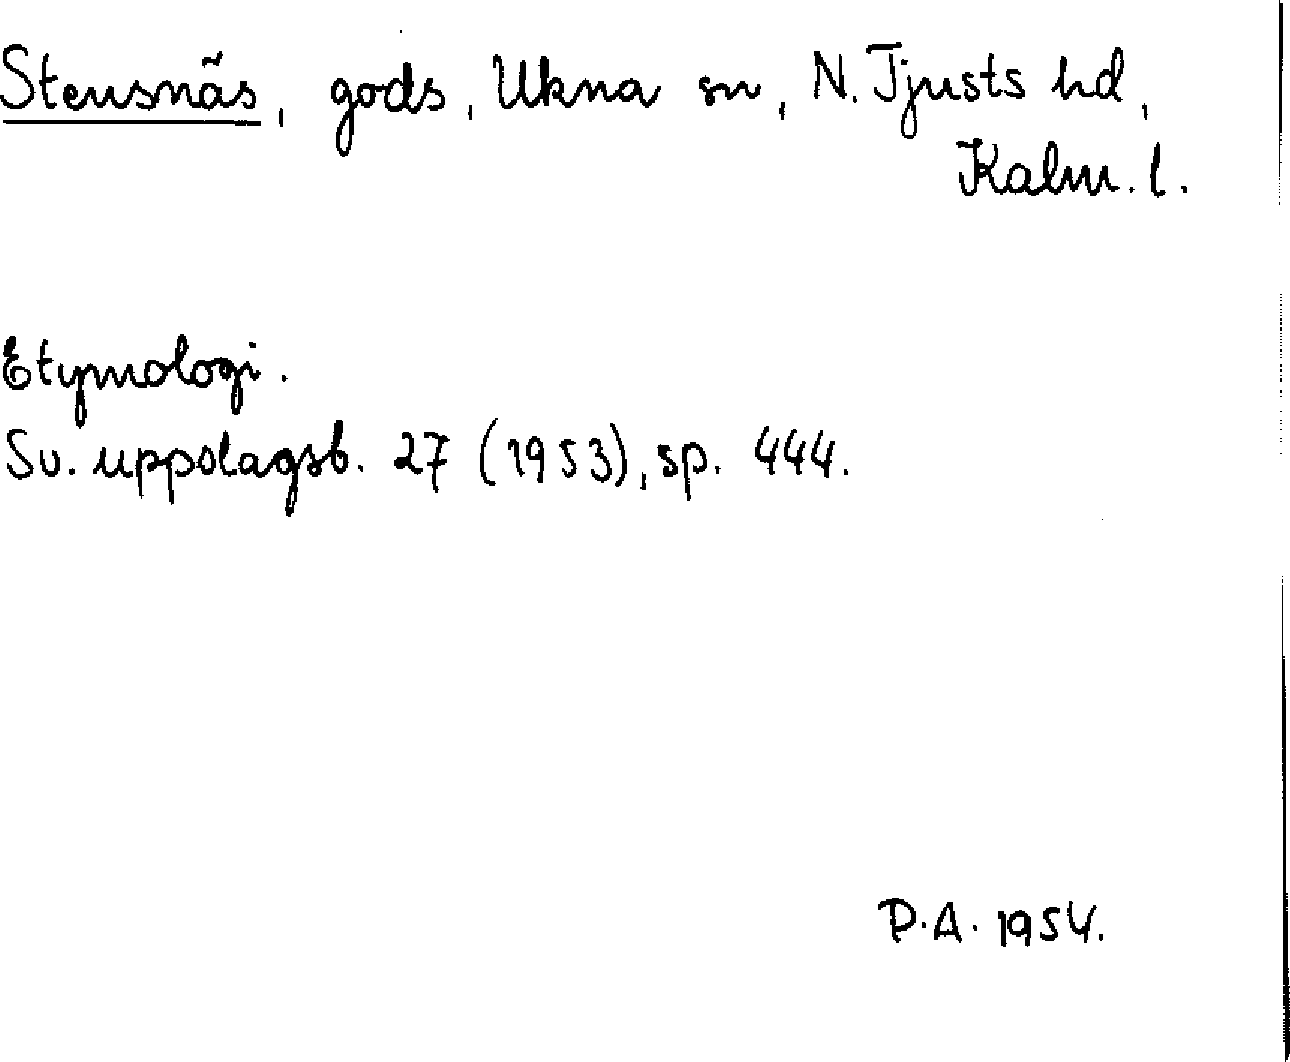 Stensnäs, gods, Ukna sn, N. Tjusts hd,
Kalm. l.
Etymologi.
Sv. uppslagsb. 27 (1953), sp. 444.
P.A. 1954.